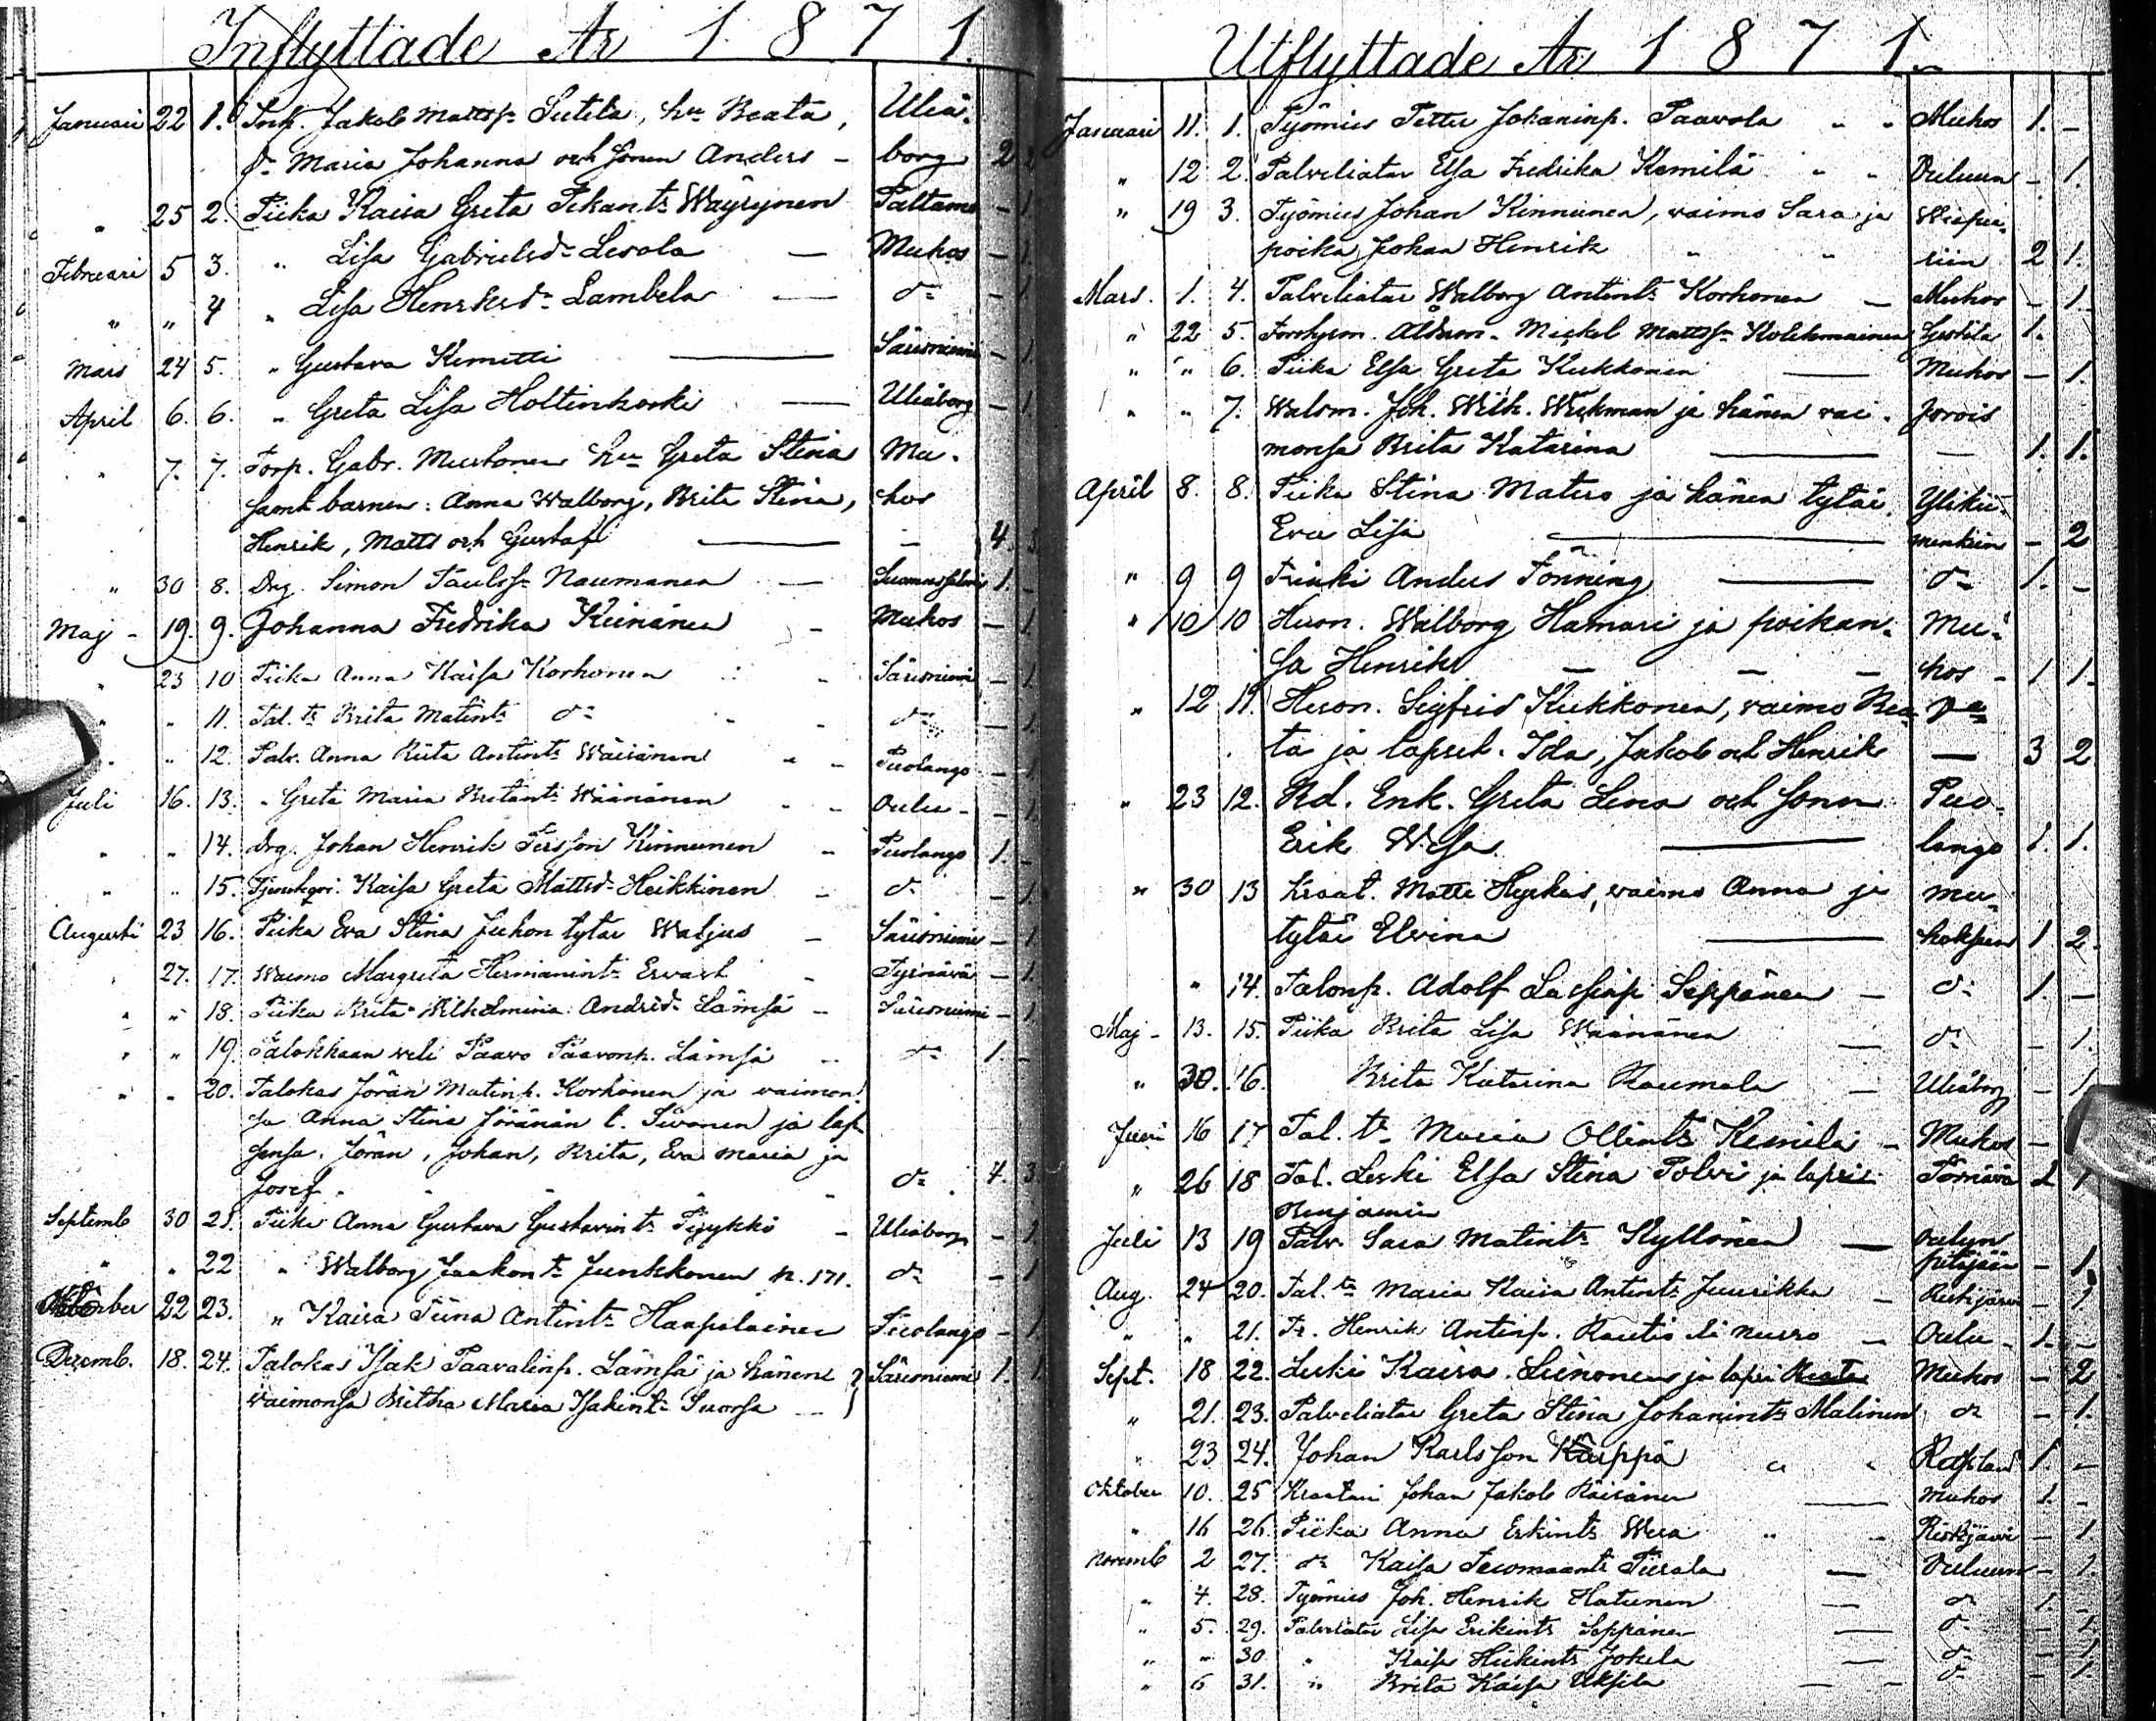 Inflyttade År 1871.
Januari 22 1. Inh. Jakob Mattss. Sutela, hu Beata, Uleå-
dr Maria Johanna och sonen Anders - borg 2 2
" 25 2. Piika Kaisa Greta Pekant. Wäyrynen Paltamo - 1
Februari 5 3. " Lisa Gabrielsd. Lesola — Muhos - 1
" " 4 " Lisa Henriksd. Lambela — do - 1
Mars 24 5. " Gustava Kemitti — Säresniemi - 1
April 6. 6. " Greta Lisa Holtinkoski — Uleåborg - 1
" 7. 7. Torp. Gabr. Mustonen hu Greta Stina Mu-
samt barnen: Anna Walborg, Brita Stina, hos
Henrik, Matts och Gustaf — - 4. 3
" 30 8. Drg. Simon Paulss. Naumanen — Suomussalmi 1. -
Maj - 19. 9. Johanna Fredrika Keinänen - Muhos - 1
" 23 10 Piika Anna Kaisa Korhonen " Säresniemi - 1
" " 11. Tal. tr Brita Matint. do " " do - 1
" " 12. Palv. Anna Riita Antint. Wäisänen " - Puolango - 1
Juli 16. 13. " Greta Maria Bertant. Wäänänen " - Oulu - - 1
" " 14. Drg. Johan Henrik Persson Kinnunen - Puolango 1. -
" " 15. Tjenstqvi. Kaisa Greta Mattsd. Heikkinen - do - 1
Augusti 23 16. Piika Eva Stina Juhon tytär Waljus - Säresniemi - 1
27. 17. Waimo Margreta Hermanint. Ervast - Tyrnävä - 1
" " 18. Piika Brita Wilhelmina Andersd. Lämsä - Säresniemi - 1
" " 19. Talokkaan veli Paavo Paavonp. Lämsä - do 1. -
" " 20. Talokas Jöran Matinp. Korhonen ja vaimon-
sa Anna Stina Jöranan t. Sivonen ja lap-
sensa. Jöran, Johan, Brita, Eva Maria ja
Josef. " " " do 4. 3.
Septemb 30 21. Piika Anna Gustava Gustavin tr Pyykkö - Uleåborg - 1
" " 22 " Walborg Jaakon tr Junkkonen N. 171. do - 1
Oktober 22 23. " Kaisa Tiina Antint. Haapalainen Puolango - 1.
Decemb. 18. 24. Talokas Isak Paavalinp. Lämsä ja hänen } Säresniemi 1. 1.
vaimonsa Britha Maria Isakint. Suorsa
Utflyttade År 1871.
Januari 11. 1. Työmies Petter Johaninp. Paavola " " Muhos 1. -
" 12 2. Palveliatar Elsa Fredrika Kemilä " " Ouluun - 1.
" 19 3. Työmies Johan Kinnunen, vaimo Sara ja Wiapu-
poika Johan Henrik " " riin 2 1.
Mars. 1. 4. Palveliatar Walborg Antint. Korhonen — Muhos - 1.
" 22 5. Mickel Mattss. Kolehmainen 1.
" " 6. Piika Elsa Greta Kukkonen — Muhos - 1.
" " 7. Joh. Wilh. Wickman ja hänen vai- Jorois
monsa Brita Katarina — — 1. 1.
April 8. 8. Piika Stina Matero ja hänen tytär. Ylikii-
Eva Lisa — minkiin - 2
" 9 9 Anders Fönning — do 1. -
" 10 10 Huon. Walborg Hamari ja poikan- Mu-
sa Henrik — — - hos - 1 1.
" 12 11. Huon. Sigfrid Kukkonen, vaimo Bea- do
ta ja lapset. Ida, Jakob och Henrik — 3 2
" 23 12. Rd. Enk. Greta Lena och sonen Puo-
Erik Wesa. — lango 1. 1.
" 30 13 Kraat. Matti Hyrkäs, vaimo Anna ja mu-
tytär Elvina — hoksen 1 2.
" 14. Talonp. Adolf Lassinp Seppänen — do 1. -
Maj - 13. 15. Piika Brita Lisa Wäänänen — do - 1.
" 30. 16. Brita Katarina Raumala — Uleåborg - 1
Juni 16 17 Tal. tr Maria Ollint. Kemilä - Muhos -
" 26 18 Tal. Leski Elsa Stina Polvi ja lapsi Törnävä 1 1
Benjamin
Juli 13 19 Palv. Sara Matint. Kyllönen — Oulun
pitäjään - 1.
Aug. 24 20. Tal. tr Maria Kaisa Antint. Juurikka — Ruhijärvi - 1
" " 21. Henrik Antinp. Rautio - Oulu - 1. -
Sept. 18 22. Leski Kaisa Leinonen ja lapsi Beata Muhos - 2
" 21. 23. Palveliatar Greta Stina Johanint. Malinen do - 1.
" 23 24. Johan Karlsson Karppä " " Ryssland 1. -
Oktober 10. 25 Kraatari Johan Jakob Räisänen — Muhos 1. -
" 16 26. Piika Anna Erkint. Wesa " " - 1
Novemb 2 27. do Kaisa Tuomaant. Pirala — Ouluun - 1.
" 4. 28. Työmies Joh. Henrik Hatunen — do 1. -
" 5. 29. Palveliatar Lisa Erikint. Seppänen — do - 1.
" " 30 " Kaisa Heikint. Jokela — do - 1.
" 6 31. " Brita Kaisa Uksila — - do - 1.